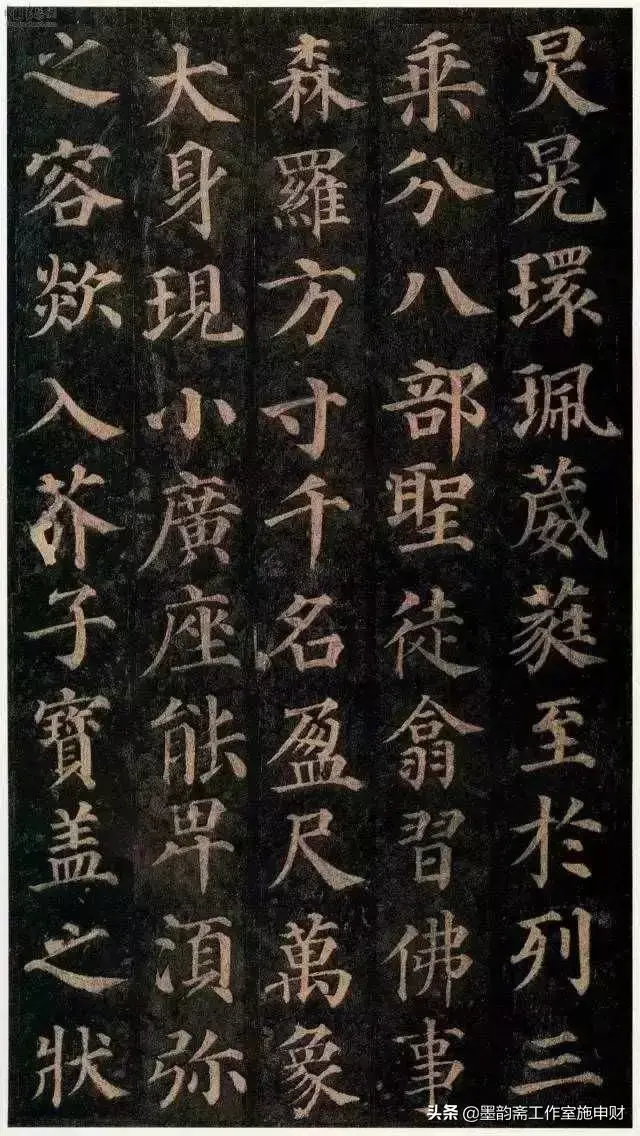 炅晃環珮葳蕤至於列三
乘分八部聖徒翕習佛事
森羅方寸千名盈尺萬象
大身現小廣座能卑須弥
之容欻入芥子寶盖之狀
头条 @墨韵斋工作室施申财